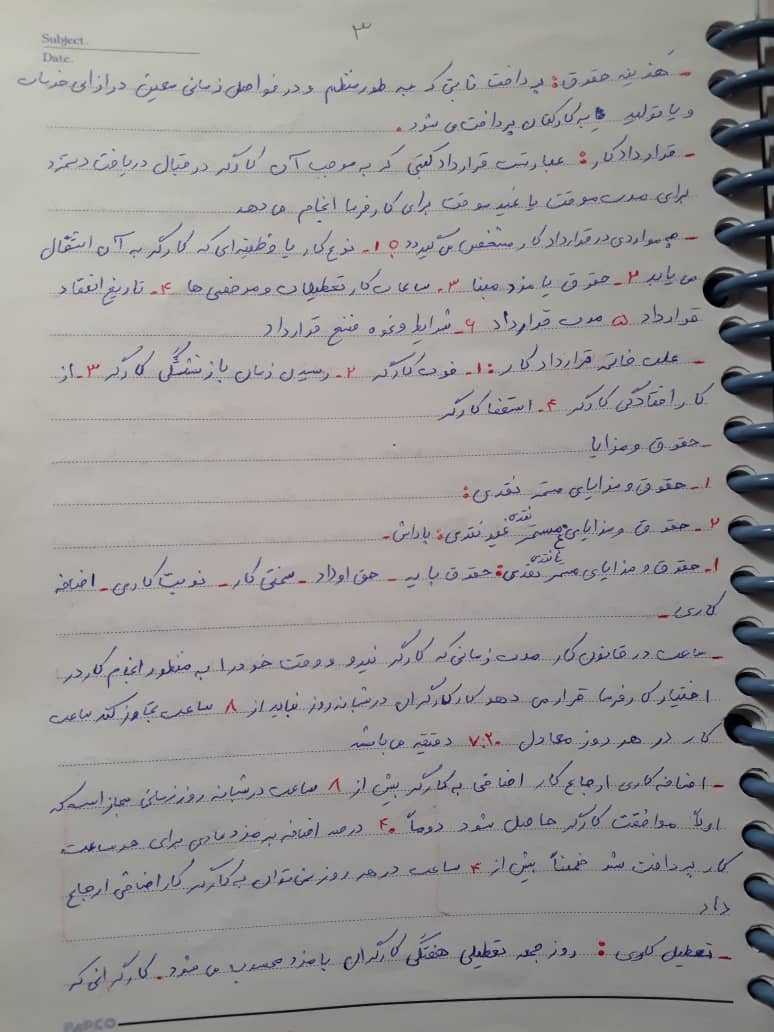 ۳
Subject.
Date.
- هزینه حقوق: پرداخت ثابتی که به طور منظم و در فواصل زمانی معین در ازای خدمات
و یا تولید به کارکنان پرداخت می شود.
- قرارداد کار: عبارتست قرارداد کتبی که به موجب آن کارگر در قبال دریافت دستمزد
برای مدت موقت یا غیر موقت برای کارفرما انجام می دهد
- چه مواردی در قرارداد کار مشخص می گیرد؟ ۱- نوع کار یا وظیفه ای که کارگر به آن اشتغال
می یابد ۲- حقوق یا مزد مبنا ۳- ساعات کار تعطیلات و مرخصی ها ۴- تاریخ انعقاد
قرارداد ۵ مدت قرارداد ۶- شرایط و نحوه فسخ قرارداد
- علت خاتمه قرارداد کار: ۱- فوت کارگر ۲- رسیدن زمان بازنشستگی کارگر ۳- از
کار افتادگی کارگر ۴- استعفا کارگر
- حقوق و مزایا
۱- حقوق و مزایای مستمر نقدی:
۲- حقوق و مزایای غیر مستمر نقدی: پاداش-
۱- حقوق و مزایای مستمر نقدی: حقوق پایه - حق اولاد - سختی کار - نوبت کاری - اضافه
کاری-
- ساعت در قانون کار مدت زمانی که کارگر نیرو و وقت خود را به منظور انجام کار در
اختیار کارفرما قرار می دهد کار کارگران در شبانه روز نباید از ۸ ساعت تجاوز کند ساعت
کار در هر روز معادل ۷:۲۰ دقیقه می باشد
- اضافه کاری ارجاع کار اضافی به کارگر بیش از ۸ ساعت در شبانه روز زمانی مجاز است که
اولاً موافقت کارگر حاصل شود دوماً ۴۰ درصد اضافه بر مزد عادی برای هر ساعت
کار پرداخت شو ضمناً بیش از ۴ ساعت در هر روز نمی توان به کارگر کار اضافی ارجاع
داد
- تعطیل کاری: روز جمعه تعطیلی هفتگی کارگران با مزد محسوب می شود. کارگرانی که
PAPCO